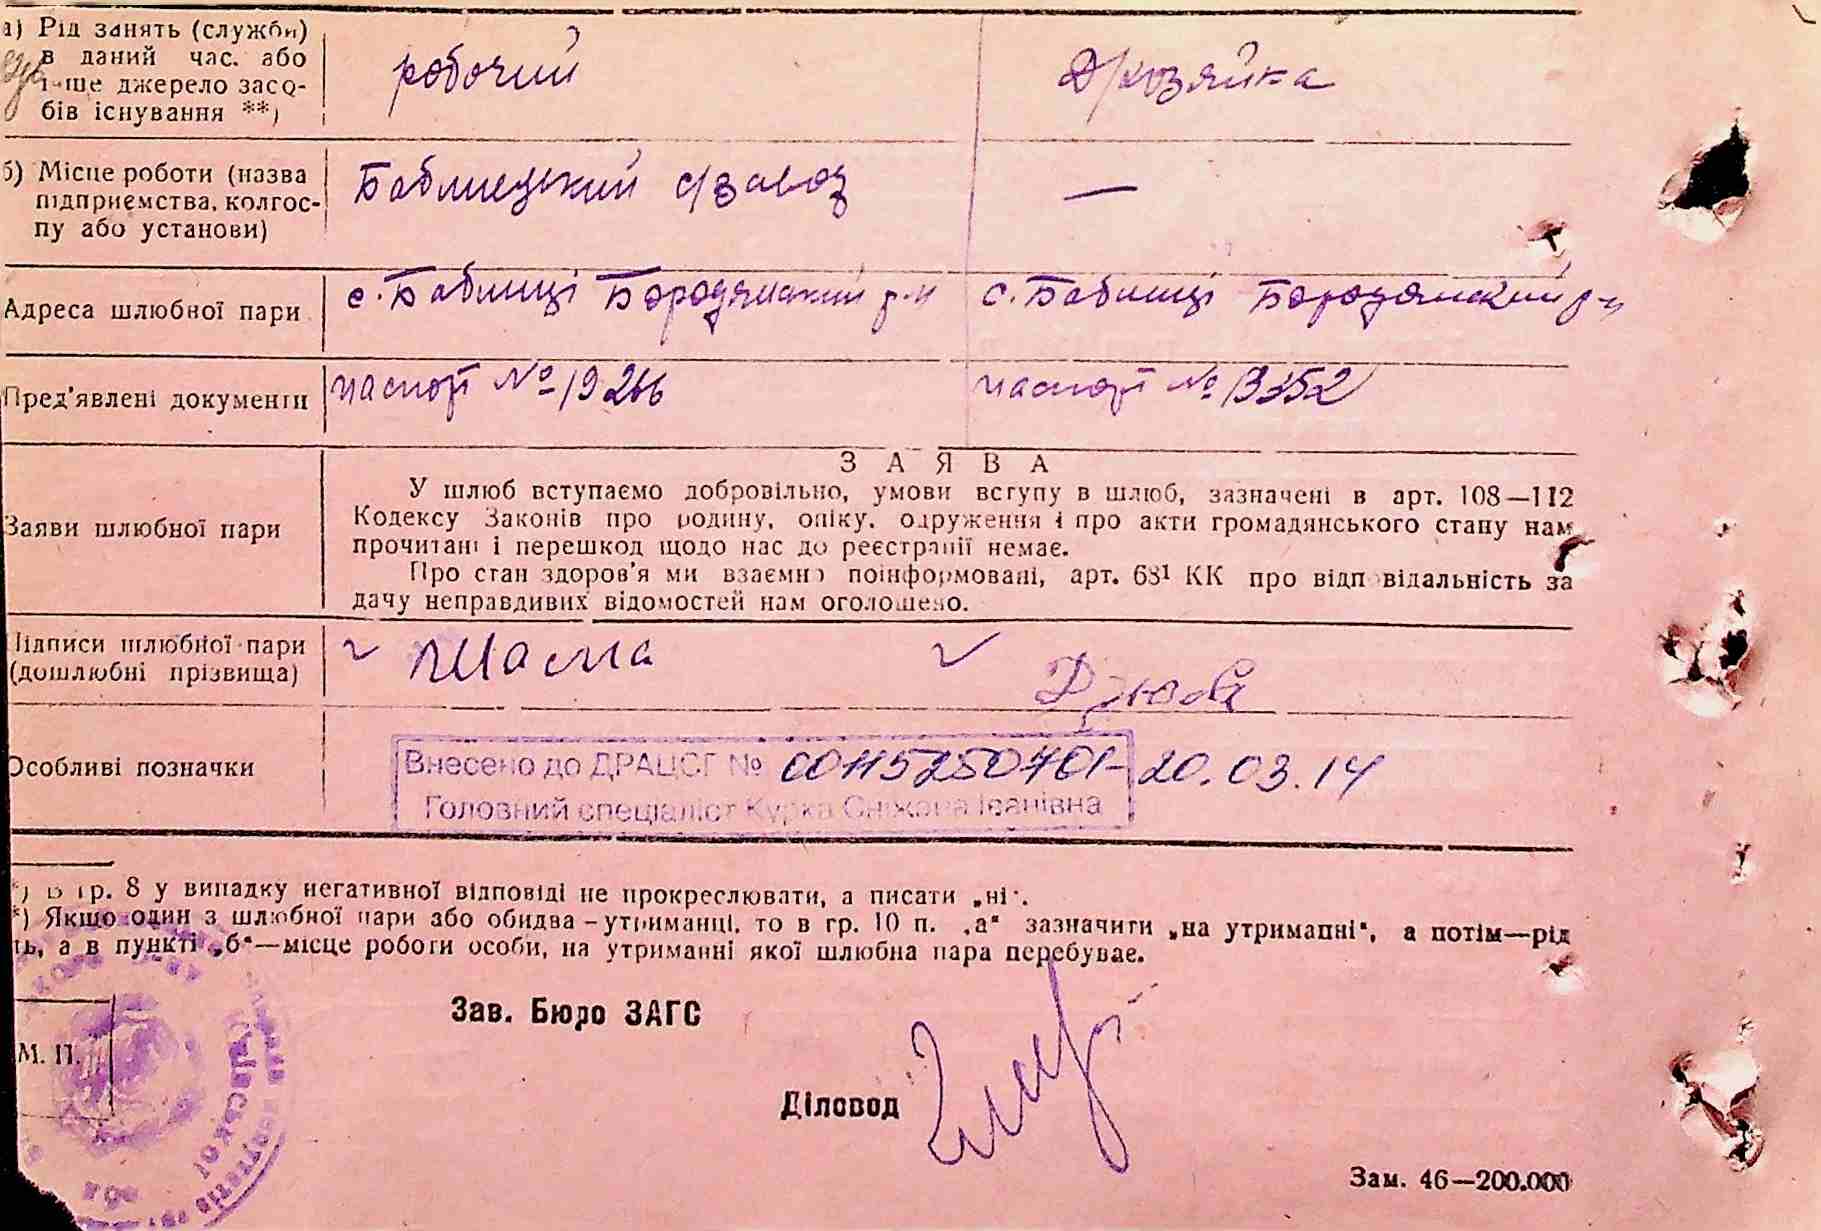 а) Рід занять (служби) в даний час. або інше джерело засобів існування **)
робочий
Д/хозяйка
б) Місце роботи (назва підприємства, колгоспу або установи)
Бабинецький с/завод
—
Адреса шлюбної пари
с. Бабинці Бородянський р-н
с. Бабинці Бородянский р-н
Пред'явлені документи
паспорт № 19266
паспорт № 13352
ЗАЯВА
Заяви шлюбної пари
У шлюб вступаємо добровільно, умови вступу в шлюб, зазначені в арт. 108—112
Кодексу Законів про родину, опіку, одруження і про акти громадянського стану нам
прочитані і перешкод щодо нас до реєстрації немає.
Про стан здоров'я ми взаємно поінформовані, арт. 68¹ КК про відповідальність за
дачу неправдивих відомостей нам оголошено.
Підписи шлюбної пари
(дошлюбні прізвища)
Дзюба
Особливі позначки
Внесено до ДРАЦСГ № 00115250701- 20.03.14
Головний спеціаліст Курка Сніжана Іванівна
*) В гр. 8 у випадку негативної відповіді не прокреслювати, а писати „ні".
*) Якщо один з шлюбної пари або обидва – утриманці, то в гр. 10 п. „а" зазначити „на утриманні", а потім—рід
ть, а в пункті „б"—місце роботи особи, на утриманні якої шлюбна пара перебуває.
Зав. Бюро ЗАГС
М. П.
Діловод
Зам. 46—200.000